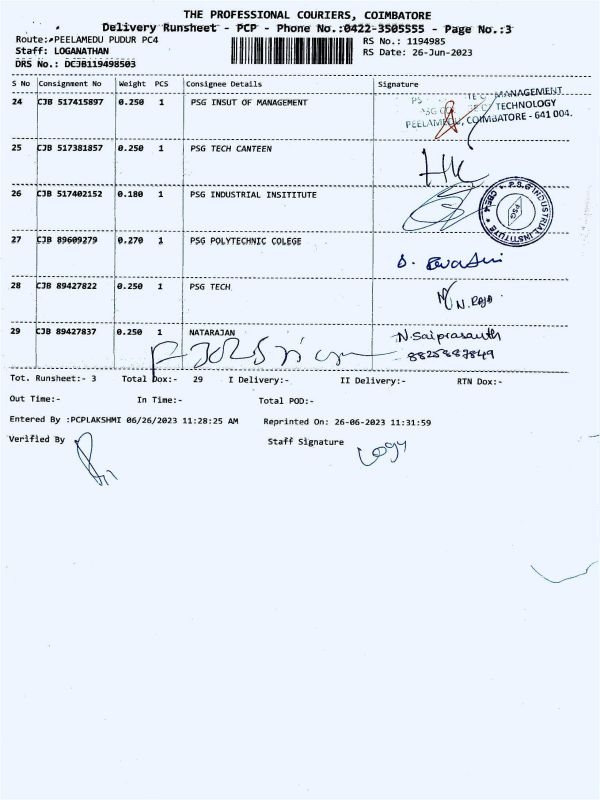 THE PROFESSIONAL COURIERS, COIMBATORE
Delivery Runsheet - PCP - Phone No.:0422-3505555 - Page No.:3
Route: PEELAMEDU PUDUR PC4
RS No.: 1194985
Staff: LOGANATHAN
RS Date: 26-Jun-2023
DRS No.: DCJB119498503
S No Consignment No Weight PCS Consignee Details Signature
24 CJB 517415897 0.250 1 PSG INSUT OF MANAGEMENT
MANAGEMENT
TECHNOLOGY
PEELAMEDU, COIMBATORE - 641 004.
25 CJB 517381857 0.250 1 PSG TECH CANTEEN
HK
26 CJB 517402152 0.180 1 PSG INDUSTRIAL INSITITUTE
P.S.G INDUSTRIAL INSTITUTE * CBE-4 *
PSG
27 CJB 89609279 0.270 1 PSG POLYTECHNIC COLEGE
28 CJB 89427822 0.250 1 PSG TECH
N. Raja
29 CJB 89427837 0.250 1 NATARAJAN
N. Saiprasanth
8825887849
Tot. Runsheet:- 3 Total Dox:- 29 I Delivery:- II Delivery:- RTN Dox:-
Out Time:- In Time:- Total POD:-
Entered By :PCPLAKSHMI 06/26/2023 11:28:25 AM Reprinted On: 26-06-2023 11:31:59
Verified By Staff Signature
Logu